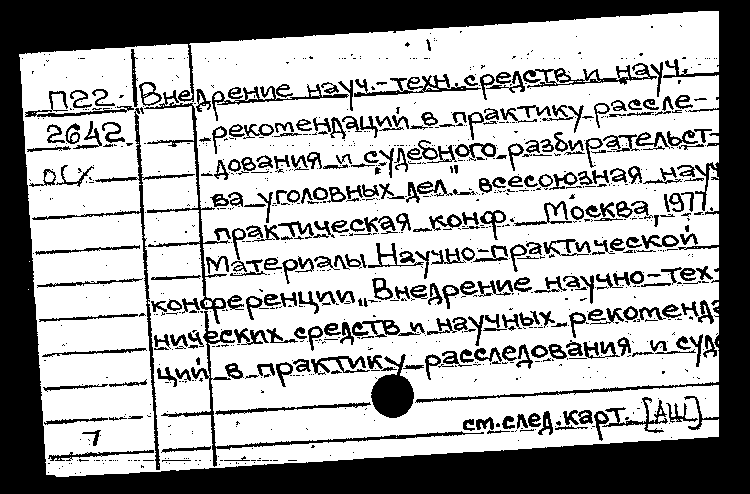 П22 „Внедрение науч.-техн. средств и науч.
2642 рекомендаций в практику рассле-
дования и судебного разбирательст-
ва уголовных дел." всесоюзная науч
практическая конф. Москва, 1977.
Материалы Научно-практической
конференции „Внедрение научно-тех-
нических средств и научных рекоменда
ций в практику расследования и суде
см. след. карт. [АШ]
7